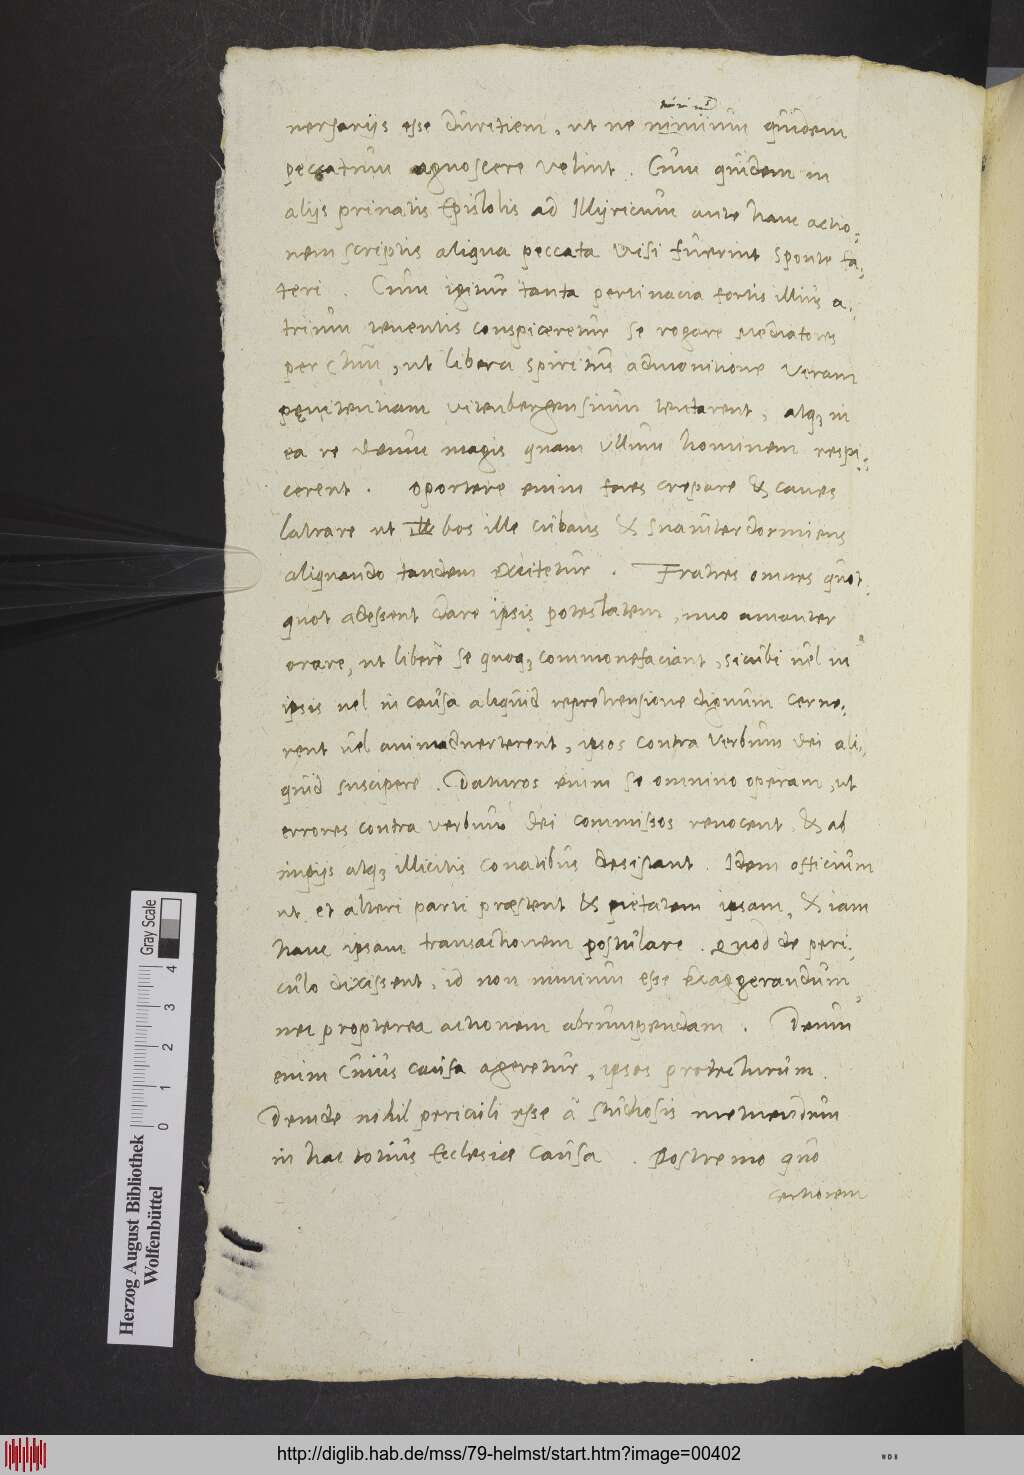 minimū
uersarijs esse duritiem, ut ne nimium quidem
peccatum agnoscere velint. Cum quidem in
alijs priuatis Epistolis ad Illyricum ante hanc actio-
nem scriptis aliqua peccata uisi fuerint sponte fa-
teri. Cum igitur tanta pertinacia fortis illius a-
trium tenentis conspiceretur se rogare Mediatores
per Chrm̄, ut libera spiritus admonitione veram
pęnitentiam vitenbergensium tentarent, atq; in
ea re deum magis quam ullum hominem respi-
cerent. Oportere enim fores crepare & canes
latrare ut bos ille cubans & suauiter dormiens
aliquando tandem excitetur. Fratres omnes quot-
quot adessent dare ipsis potestatem, imo amanter
orare, ut libere se quoq; commonefaciant, sicubi uel in
ipsis uel in causa aliquid reprehensione dignum cerne-
rent uel animaduerterent, ipsos contra verbum dei ali-
quid suscipere. Daturos enim se omnino operam, ut
errores contra verbum dei commissos reuocent, & ab
impijs atq; illicitis conatibus desistant. Idem officium
ut et alteri parti præstent & pietatem ipsam, & iam
hanc ipsam transactionem postulare. Quod de peri-
culo dixissent, id non nimium esse exaggerandum
nec propterea actionem abrumpendam. Deum
enim cuius causa ageretur, ipsos protecturum.
Deinde nihil periculi esse à studiosis metuendum
in hac totius Ecclesiæ causa. Postremo quo
certiorem
Herzog August Bibliothek
Wolfenbüttel
Gray Scale
0 1 2 3 4
http://diglib.hab.de/mss/79-helmst/start.htm?image=00402
WDB